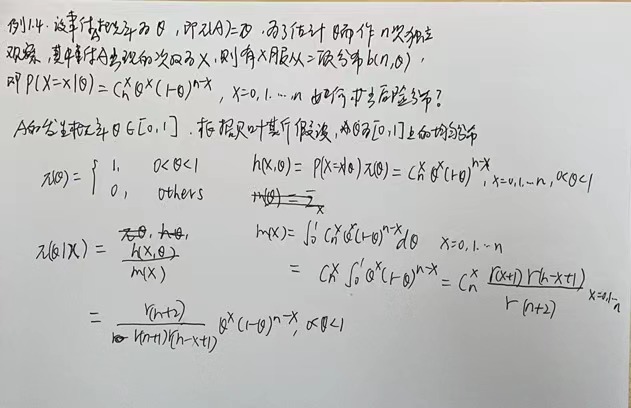 例1.4. 设事件A概率为θ, 即π(A)=θ. 为了估计θ而作n次独立
观察, 其中事件A出现的次数为X, 则有X服从二项分布b(n,θ),
即 P(X=x|θ)=Cₙˣθˣ(1-θ)ⁿ⁻ˣ, x=0,1...n 如何求出后验分布?
A的发生概率θ∈[0,1]. 根据贝叶斯假设, θ为[0,1]上的均匀分布
π(θ)= { 1, 0<θ<1
0, others
h(x,θ)=P(X=x|θ)π(θ)=Cₙˣθˣ(1-θ)ⁿ⁻ˣ, x=0,1...n, 0<θ<1
m(θ)=Σₓ
π(θ|X)= h(x,θ)/m(x)
m(x)=∫₀¹Cₙˣθˣ(1-θ)ⁿ⁻ˣdθ x=0,1...n
=Cₙˣ∫₀¹θˣ(1-θ)ⁿ⁻ˣ=Cₙˣ Γ(x+1)Γ(n-x+1)/Γ(n+2) x=0,1...n
= Γ(n+2)/Γ(n+1)Γ(n-x+1) θˣ(1-θ)ⁿ⁻ˣ, 0<θ<1